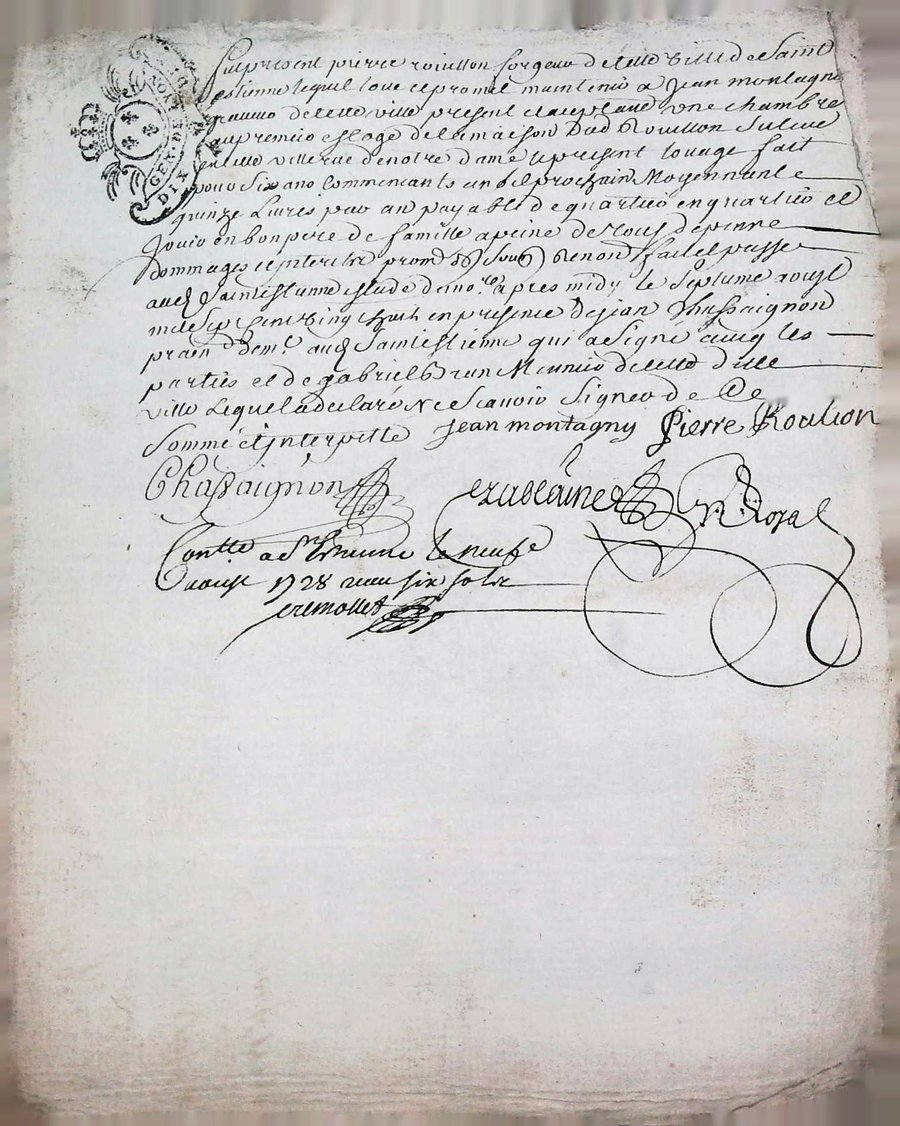 fut present pierre roullon forgeur de cette ville de Saint
estienne lequel loue et promet maintenir a Jean montagne
de cette ville present et acceptant une chambre
au premier estage de la maison dud Roullon située
en cette ville rue de notre dame le present louage fait
pour six ans commencants un prochain Moyennant
quinze Livres par an payables de quartier en quartier et
Jouir en bon pere de famille a peine de tous depenne
dommages et interests prom obb soub Renon fait et passe
aud Saint estienne estude du no.re apres midy le Septieme aoust
mil Sept cent vingt huit en presence de jean Chassaignon
pratn dem.t aud Saint estienne qui a signé avecq les
parties et de gabriel Meunier de cette dite
ville Lequel a declaré ne Scavoir Signer de ce
Sommé et Interpellé Jean montagny Pierre Roulion
Chassaignon
Royal
Contlle a St Etienne le neufe
aoust 1728 receu six sols
cremollet
GEN
DIX